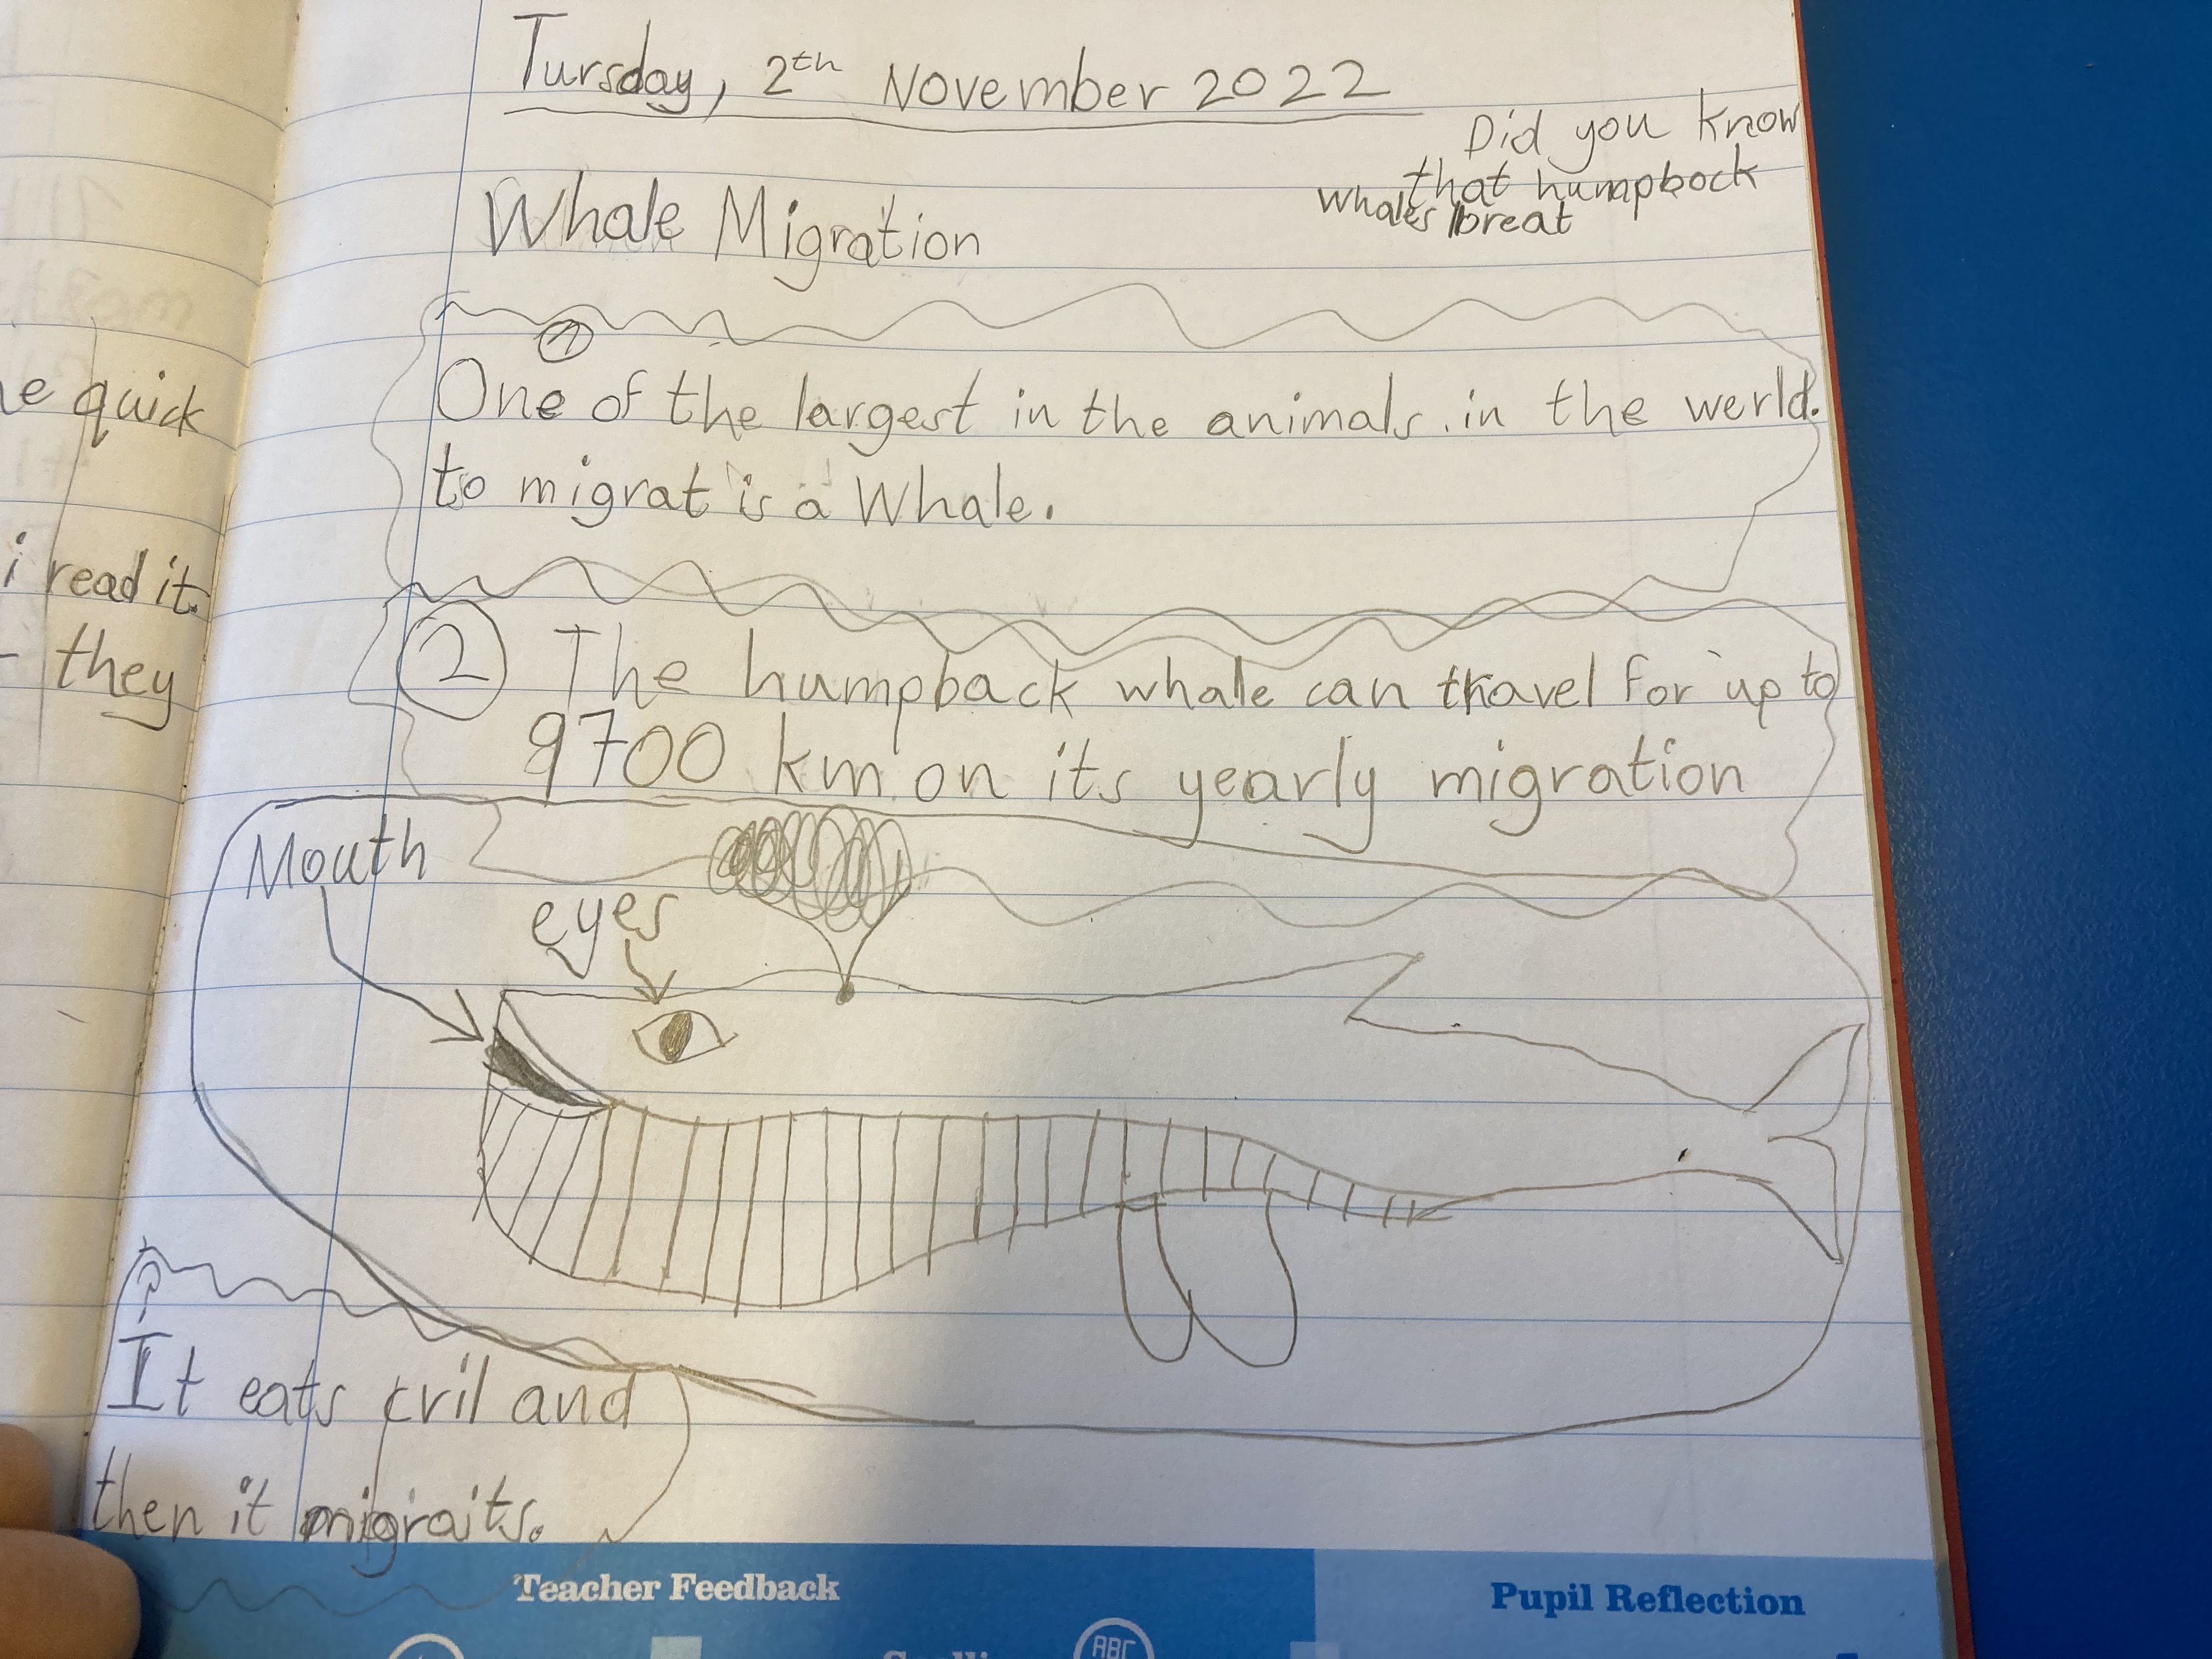 Tursday, 2th November 2022
Did you know
that humpback
whales breat
Whale Migration
1
One of the largest in the animals. in the werld.
to migrat is a Whale.
2 The humpback whale can travel for up to
9700 km on its yearly migration
Mouth
eyes
It eats cril and
then it migraits.
he quick
i read it.
they
Teacher Feedback
Pupil Reflection
ABC